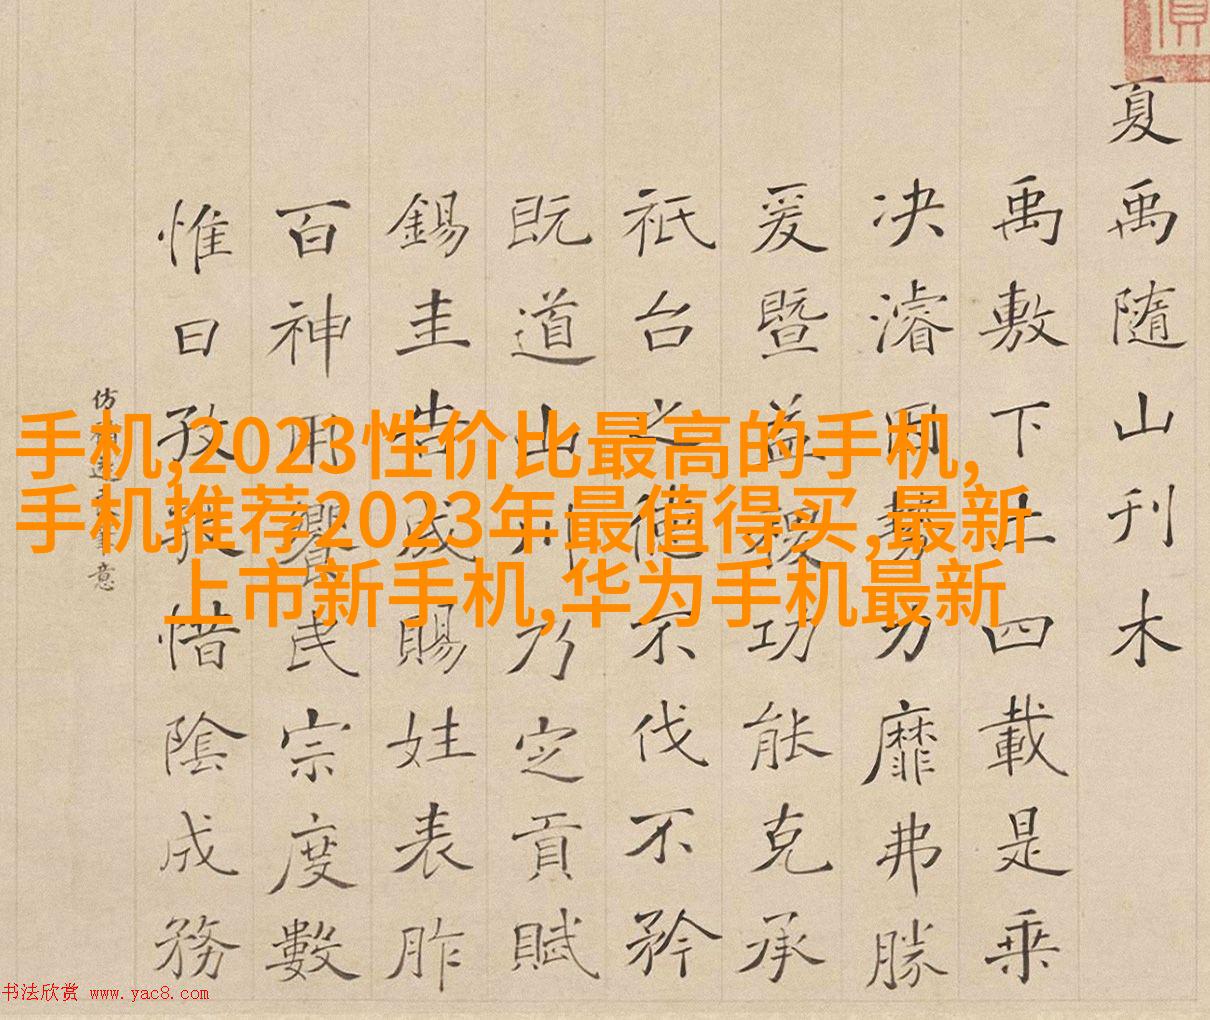 夏禹隨山刊木
禹敷下土四載是乘
决濬勢力靡弗勝
爰暨益稷功能克承
祇台之德不伐不矜
既道山川乃定貢賦
錫圭告成賜姓表胙
百神饗民宗度數
惟日孜孜惜陰成務
仿意
手机,2023性价比最高的手机,
手机推荐2023年最值得买,最新
上市新手机,华为手机最新
书法欣赏 www.yac8.com